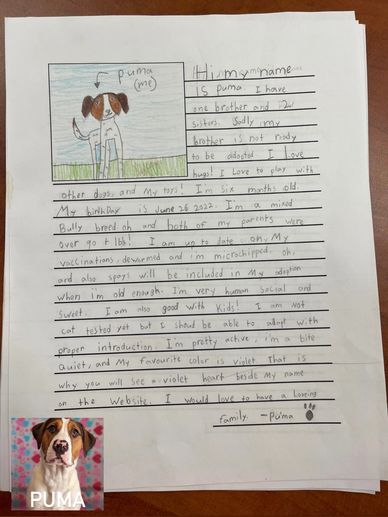 puma
(me)
Hi my name
is puma I have
one brother and 2
sisters. Sadly my
brother is not ready
to be adopted I Love
hugs! I Love to play with
other dogs, and My toys! I'm six months old.
My birthDay is June 26 2022. I'm a mixed
Bully breed oh and both of my parents were
over 90 lbb! I am up to date on, My
vaccinations, dewormed and i'm microchipped. oh,
and also spays will be included in My adoption
when i'm old enough. I'm very human social and
sweet. I am also good with Kids! I am not
cat tested yet but I shoud be able to adapt with
proper introduction. I'm pretty active, i'm a bite
Quiet, and My favourite color is violet That is
why you will see a violet heart beside My name
on the website. I would love to have a Loveing
family. -Puma
PUMA